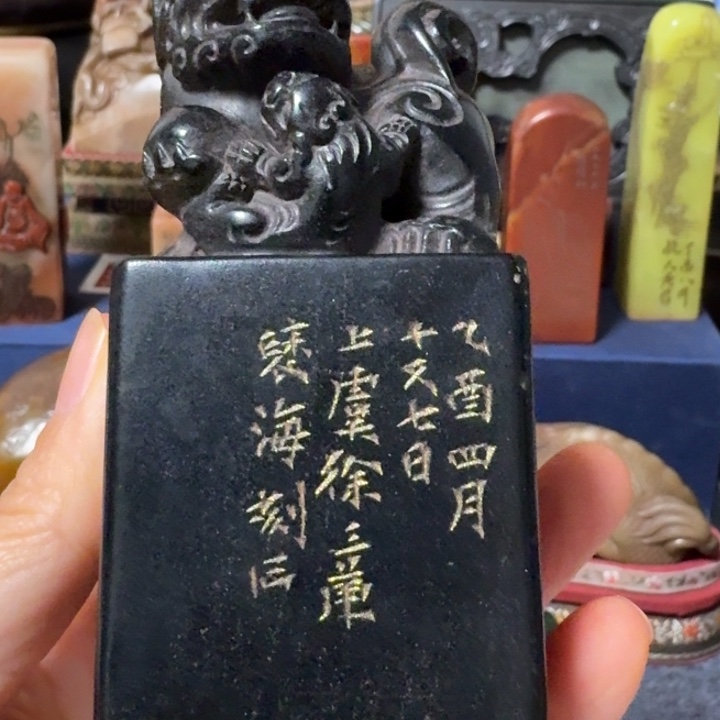 乙酉四月
十又七日
上虞徐三庚
褎海刻石